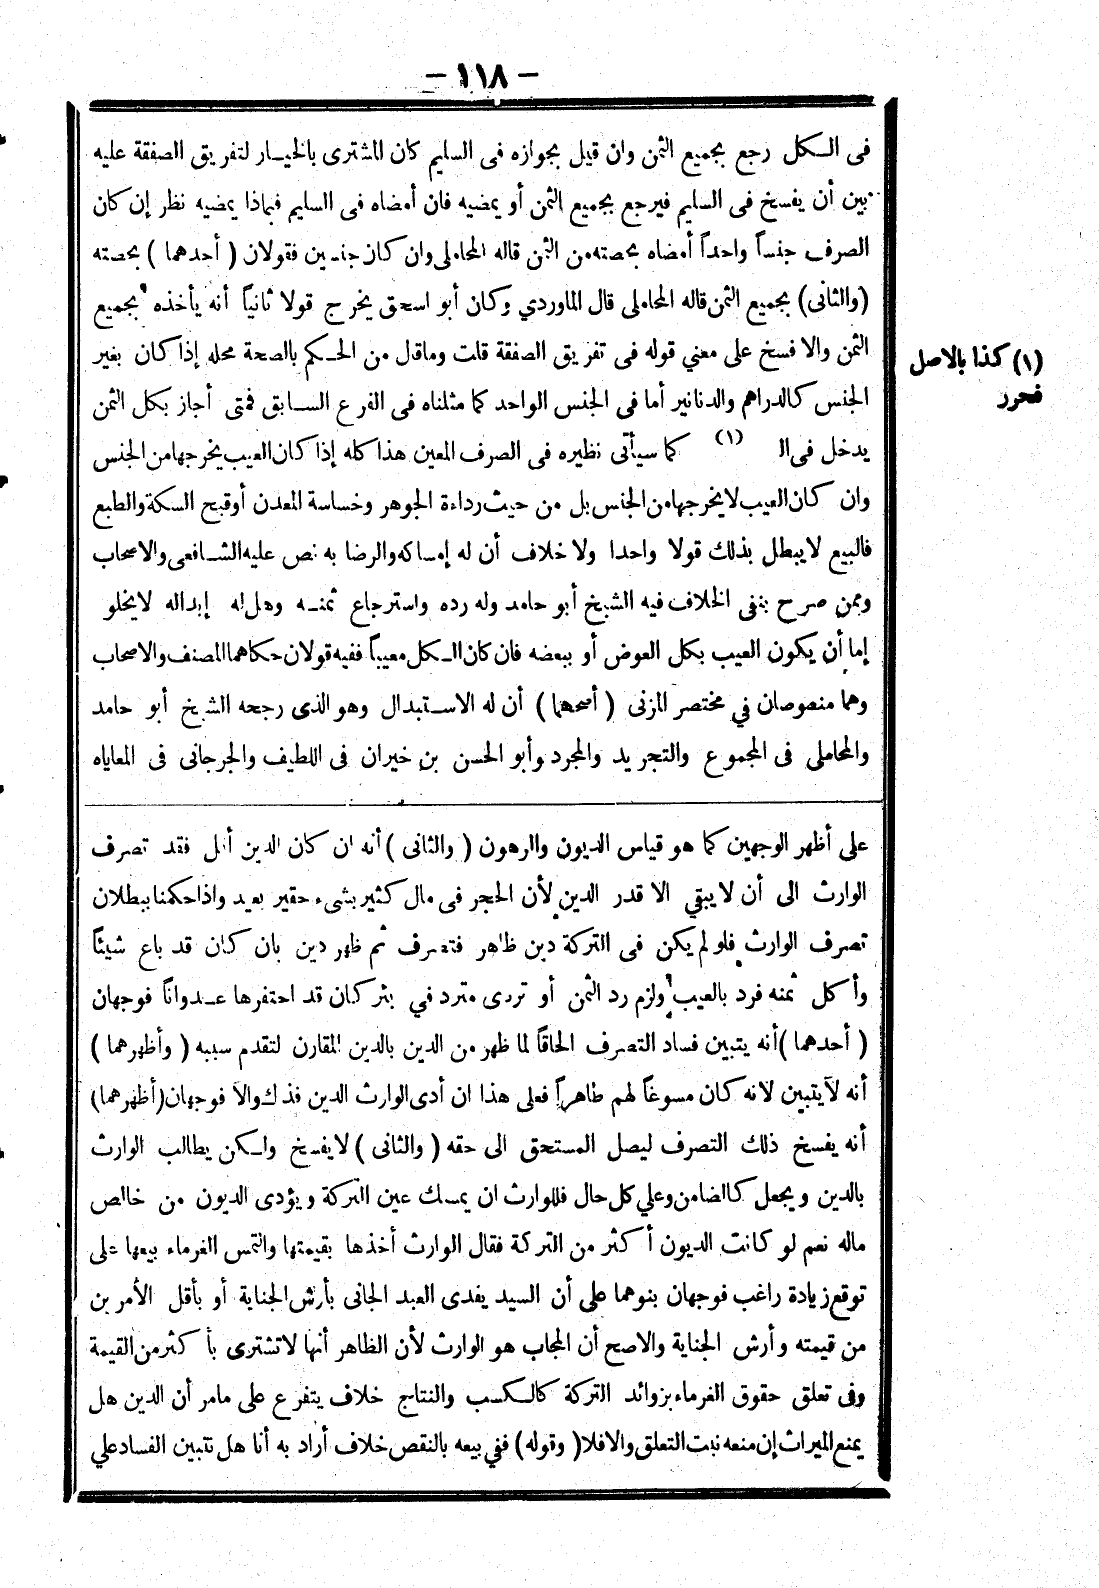 – ١١٨ –
فى الكل رجع بجميع الثمن وان قيل بجوازه فى السليم كان المشترى بالخيار لتفريق الصفقة عليه
بين أن يفسخ فى السليم فيرجع بجميع الثمن أو يمضيه فان أمضاه فى السليم فبماذا يمضيه نظر إن كان
الصرف جنساً واحداً أمضاه بحصته من الثمن قاله المحاملى وان كان جنسين فقولان ( أحدهما ) بحصته
(والثانى) بجميع الثمن قاله المحاملى قال الماوردي وكان أبو اسحق يخرج قولا ثانياً أنه يأخذه بجميع
الثمن والا فسخ على معني قوله فى تفريق الصفقة قلت وماقال من الحكم بالصحة محله إذا كان بغير
الجنس كالدراهم والدنانير أما فى الجنس الواحد كما مثلناه فى الفرع السابق فمتى أجاز بكل الثمن
يدخل فى ال (١) كما سيأتى نظيره فى الصرف المعين هذا كله إذا كان العيب يخرجها من الجنس
وان كان العيب لا يخرجها من الجنس بل من حيث رداءة الجوهر وخساسة المعدن أوقبح السكة والطبع
فالبيع لا يبطل بذلك قولا واحدا ولا خلاف أن له إمساكه والرضا به نص عليه الشافعى والاصحاب
وممن صرح بنفى الخلاف فيه الشيخ أبو حامد وله رده واسترجاع ثمنه وهل له إبداله لا يخلو
إما أن يكون العيب بكل العوض أو ببعضه فان كان الكل معيباً ففيه قولان حكاهما المصنف والاصحاب
وهما منصوصان في مختصر المزنى ( أصحهما ) أن له الاستبدال وهو الذى رجحه الشيخ أبو حامد
والمحاملى فى المجموع والتجريد والمجرد وأبو الحسن بن خيران فى اللطيف والجرجانى فى المعاياه
(١) كذا بالاصل
فحرر
على أظهر الوجهين كما هو قياس الديون والرهون ( والثانى ) أنه ان كان الدين أقل فقد تصرف
الوارث الى أن لا يبقي الا قدر الدين لأن الحجر فى مال كثير بشىء حقير بعيد واذا حكمنا ببطلان
تصرف الوارث فلو لم يكن فى التركة دين ظاهر فتصرف ثم ظهر دين بان كان قد باع شيئاً
وأكل ثمنه فرد بالعيب ولزم رد الثمن أو تردى مترد في بئر كان قد احتفرها عدواناً فوجهان
( أحدهما ) أنه يتبين فساد التصرف الحاقاً لما ظهر من الدين بالدين المقارن لتقدم سببه ( وأظهرهما )
أنه لا يتبين لانه كان مسوغاً لهم ظاهراً فعلى هذا ان أدى الوارث الدين فذك والا فوجهان (أظهرهما)
أنه يفسخ ذلك التصرف ليصل المستحق الى حقه ( والثانى ) لا يفسخ ولكن يطالب الوارث
بالدين ويجعل كالضامن وعلي كل حال فللوارث ان يمسك عين التركة ويؤدى الديون من خالص
ماله نعم لو كانت الديون أكثر من التركة فقال الوارث أخذها بقيمتها والتمس الغرماء بيعها على
توقع زيادة راغب فوجهان بنوهما على أن السيد يفدى العبد الجانى بأرش الجناية أو بأقل الأمرين
من قيمته وأرش الجناية والاصح أن المجاب هو الوارث لأن الظاهر أنها لا تشترى بأكثر من القيمة
وفى تعلق حقوق الغرماء بزوائد التركة كالكسب والنتاج خلاف يتفرع على مامر أن الدين هل
يمنع الميراث إن منعه ثبت التعلق والا فلا ( وقوله ) ففي بيعه بالنقص خلاف أراد به أنا هل نتبين الفساد علي